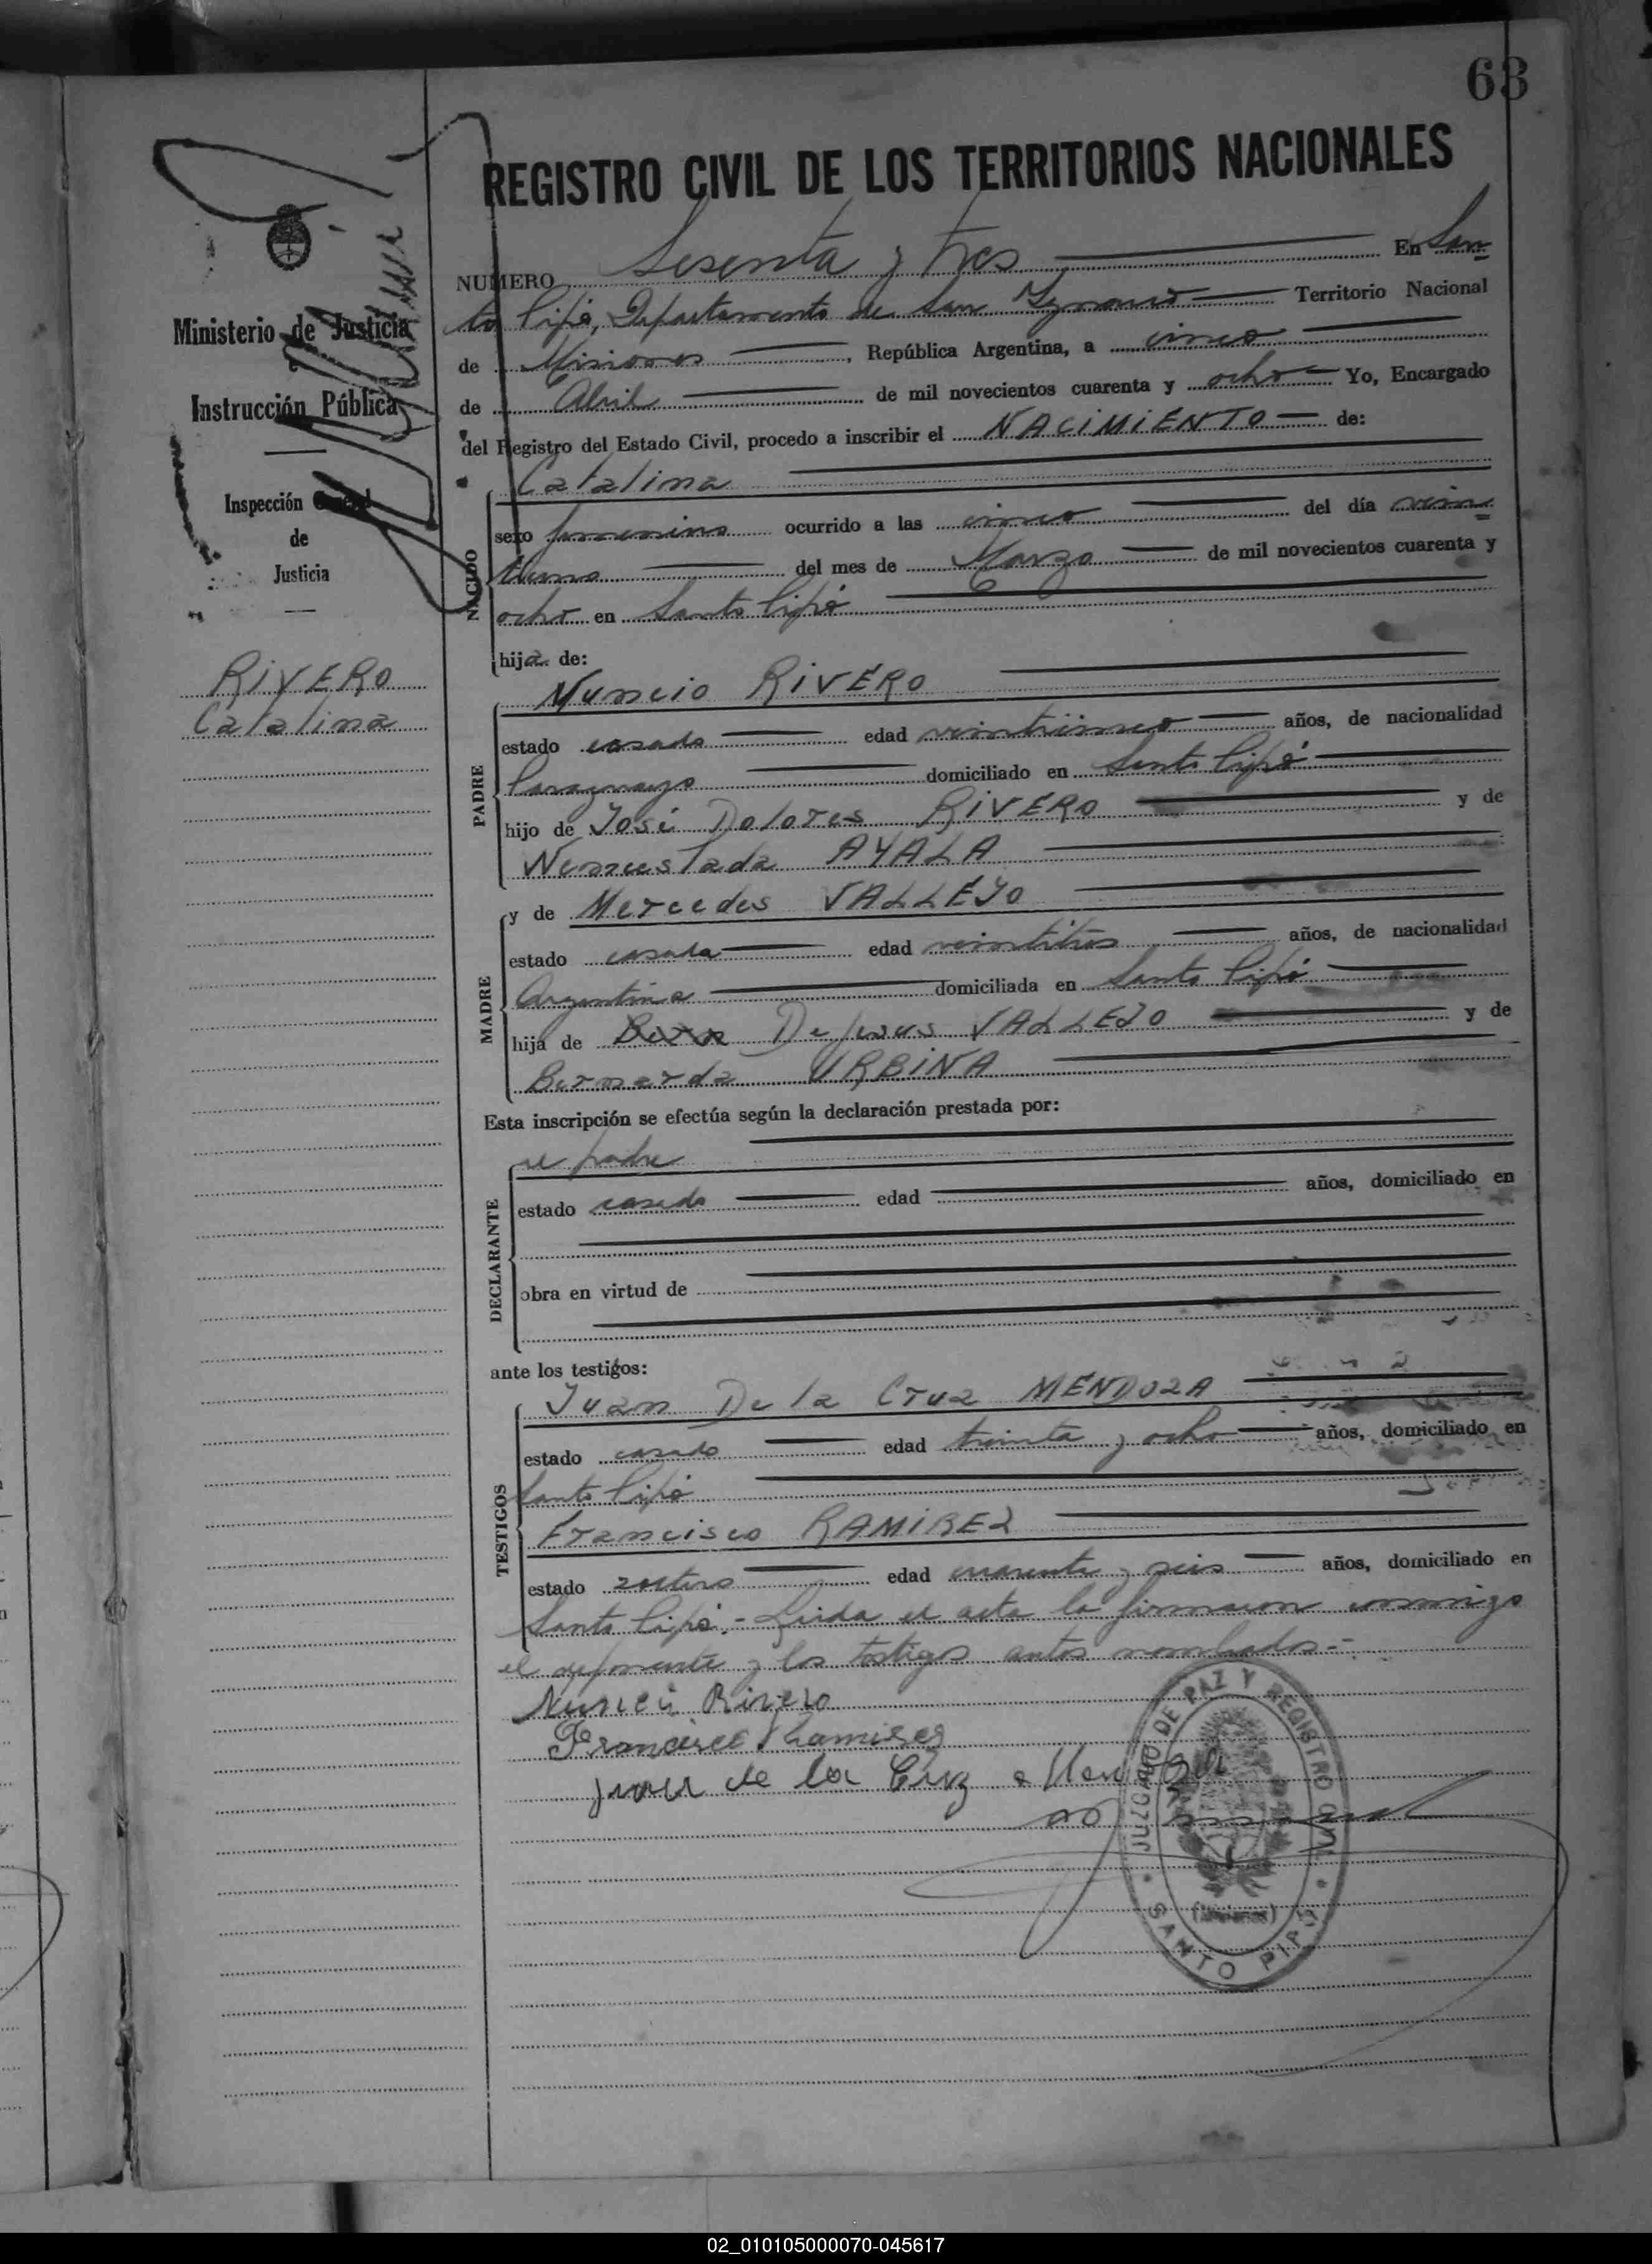 63
REGISTRO CIVIL DE LOS TERRITORIOS NACIONALES
NUMERO Sesenta y tres En San
to Pipó, Departamento de San Ygnacio Territorio Nacional
de Misiones, República Argentina, a cinco
de Abril de mil novecientos cuarenta y ocho Yo, Encargado
del Registro del Estado Civil, procedo a inscribir el NACIMIENTO de:
Catalina
sexo femenino ocurrido a las cinco del día vein
tiuno del mes de Marzo de mil novecientos cuarenta y
ocho en Santo Pipó
hija de:
NACIDO
Nuncio RIVERO
estado casado edad veinticinco años, de nacionalidad
Paraguayo domiciliado en Santo Pipó
hijo de José Dolores RIVERO y de
AYALA
PADRE
y de Mercedes VALLEJO
estado casada edad veintitrés años, de nacionalidad
Argentina domiciliada en Santo Pipó
hija de De Jesus VALLEJO y de
Bernarda URBINA
MADRE
Esta inscripción se efectúa según la declaración prestada por:
el padre
estado casado edad años, domiciliado en
obra en virtud de
DECLARANTE
ante los testigos:
Juan De la Cruz MENDOZA
estado casado edad treinta y ocho años, domiciliado en
Santo Pipó
Francisco RAMIREZ
estado soltero edad cuarenta y seis años, domiciliado en
Santo Pipó.- Leida el acta la firmaron conmigo
el deponente y los testigos antes nombrados.-
TESTIGOS
Nuncio Rivero
Francisco Ramires
Juan de la Cruz Mendoza
JUZGADO DE PAZ Y REGISTRO CIVIL
(Misiones)
SANTO PIPÓ
Ministerio de Justicia
e
Instrucción Pública
Inspección General
de
Justicia
RIVERO
Catalina
02_010105000070-045617